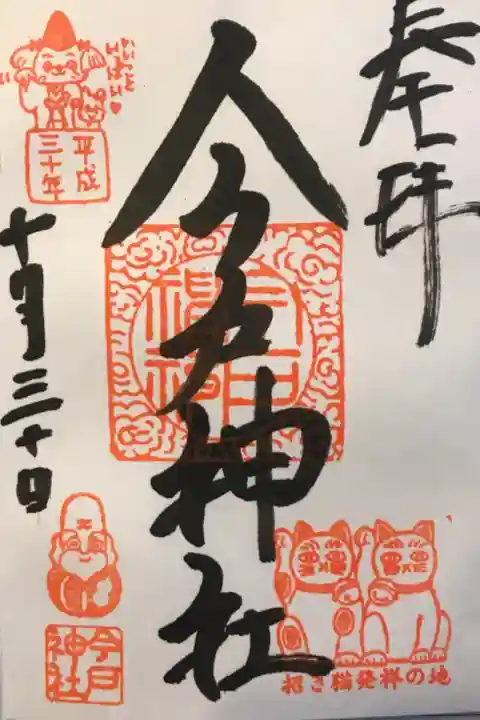 奉拝
今戸神社
平成
三十年
十月三十日
招き猫発祥の地
今戸
神社